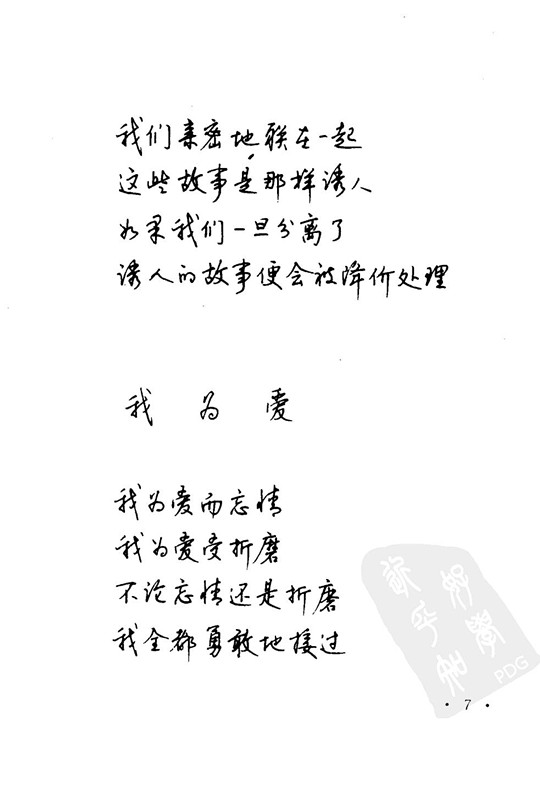 我们亲密地联在一起
这些故事是那样诱人
如果我们一旦分离了
诱人的故事便会被降价处理
我 为 爱
我为爱而忘情
我为爱受折磨
不论忘情还是折磨
我全都勇敢地接过
PDG
· 7 ·